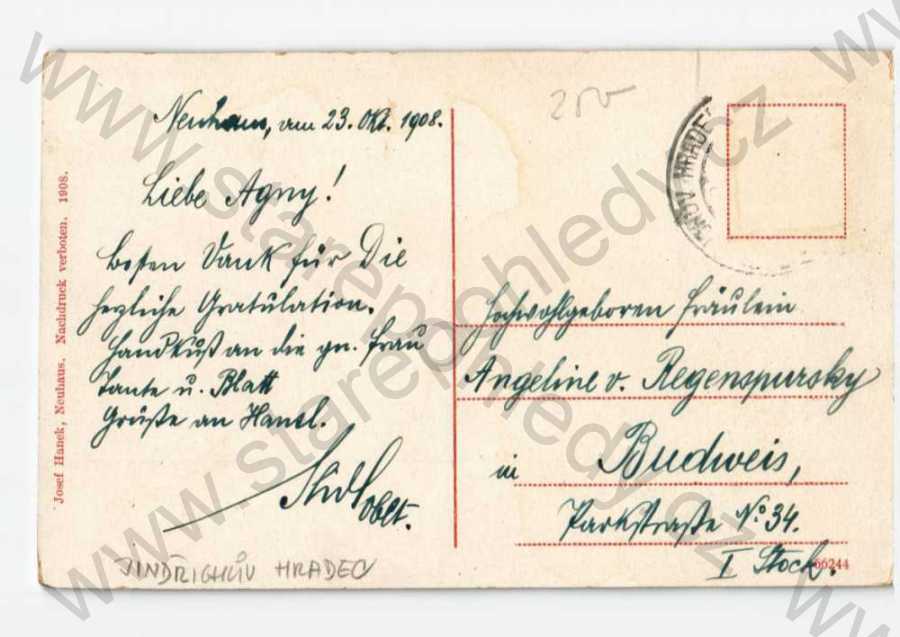 Neuhaus, am 23. Okt. 1908.
Liebe Agny!
Besten Dank für Die
herzliche Gratulation.
Handkuß an die gn. Frau
Tante u. Blatt
Grüße an Hansl.
oblt.
JINDŘICHŮV HRADEC
Josef Hanek, Neuhaus. Nachdruck verboten. 1908.
200
HRADE
Hochwohlgeboren Fräulein
Angeline v. Regenspursky
in Budweis,
Parkstraße No 34.
I Stock.
66244
www.starepohledy.cz
www.starepohledy.cz